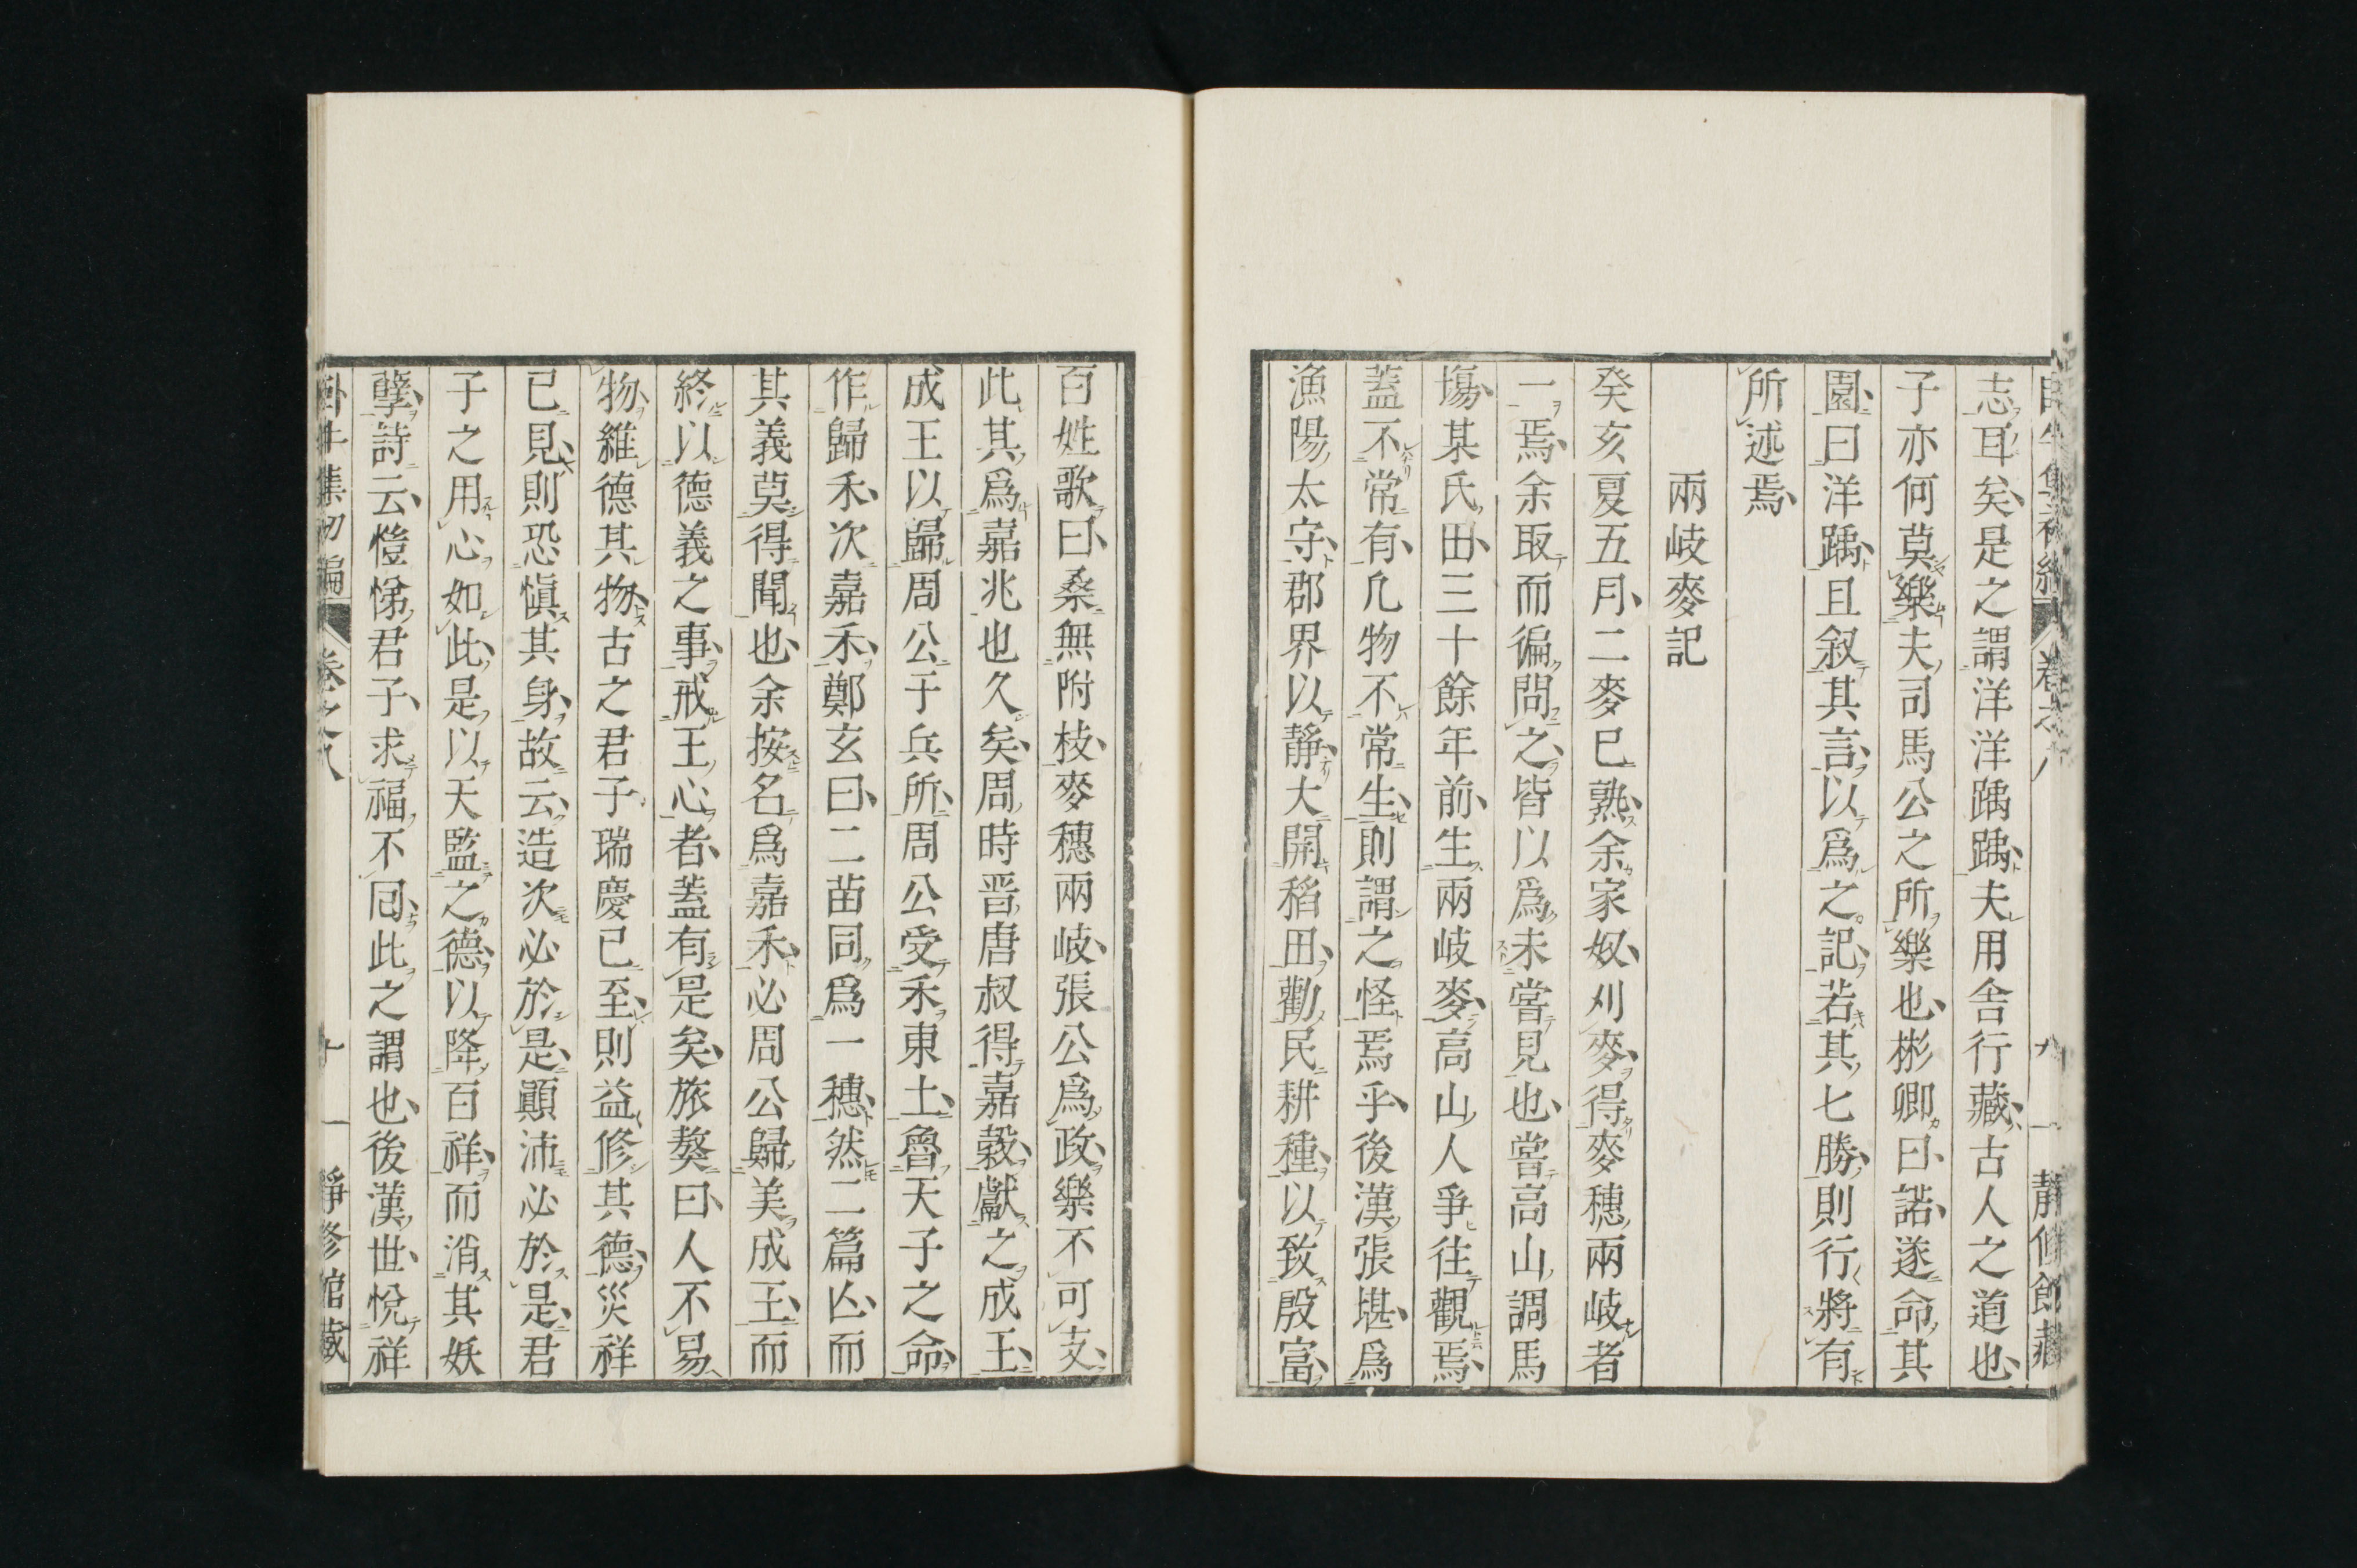 志耳矣是之謂洋洋踽踽夫用舍行藏古人之道也
子亦何莫樂夫司馬公之所樂也彬卿曰諾遂命其
園曰洋踽且叙其言以爲之記若其七勝則行將有
所述焉
兩岐麥記
癸亥夏五月二麥巳熟余家奴刈麥得麥穗兩岐者
一焉余取而徧問之皆以爲未嘗見也嘗高山調馬
塲某氏田三十餘年前生兩岐麥高山人爭往觀焉
蓋不常有凢物不常生則謂之怪焉乎後漢張堪爲
漁陽太守郡界以靜大開稻田勸民耕種以致殷富
百姓歌曰桑無附枝麥穗兩岐張公爲政樂不可支
此其爲嘉兆也久矣周時晋唐叔得嘉穀獻之成王
成王以歸周公于兵所周公受禾東土魯天子之命
作歸禾次嘉禾鄭玄曰二苗同爲一穗然二篇亾而
其義莫得聞也余按名爲嘉禾必周公歸美成王而
終以德義之事戒王心者蓋有是矣旅獒曰人不易
物維德其物古之君子瑞慶已至則益修其德災祥
已見則恐愼其身故云造次必於是顚沛必於是君
子之用心如此是以天監之德以降百祥而消其妖
孽詩云愷悌君子求福不囘此之謂也後漢世悅祥
集初編 卷之八 十一 靜修館藏